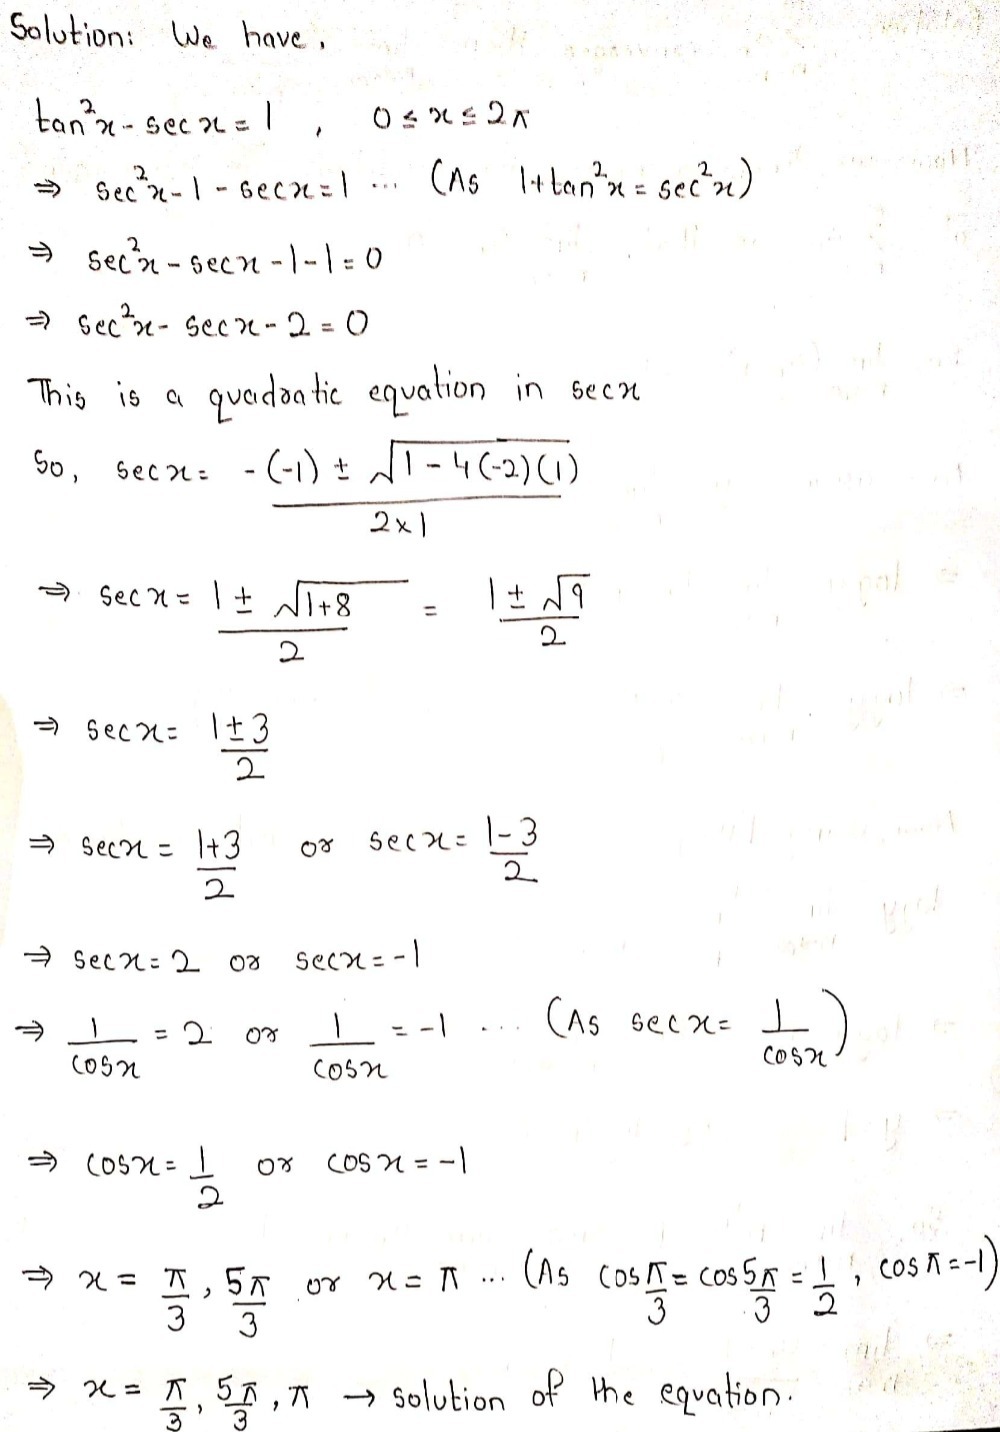 Solution: We have,
tan²x - sec x = 1 , 0 ≤ x ≤ 2π
⇒ sec²x - 1 - secx = 1 ... (As 1+tan²x = sec²x)
⇒ sec²x - secx - 1 - 1 = 0
⇒ sec²x - secx - 2 = 0
This is a quadratic equation in secx
So, secx = (-(-1) ± √(1 - 4(-2)(1)))/(2×1)
⇒ secx = (1 ± √(1+8))/2 = (1 ± √9)/2
⇒ secx = (1±3)/2
⇒ secx = (1+3)/2 or secx = (1-3)/2
⇒ secx = 2 or secx = -1
⇒ 1/cosx = 2 or 1/cosx = -1 ... (As secx = 1/cosx)
⇒ cosx = 1/2 or cosx = -1
⇒ x = π/3, 5π/3 or x = π ... (As cos π/3 = cos 5π/3 = 1/2, cosπ = -1)
⇒ x = π/3, 5π/3, π → solution of the equation.